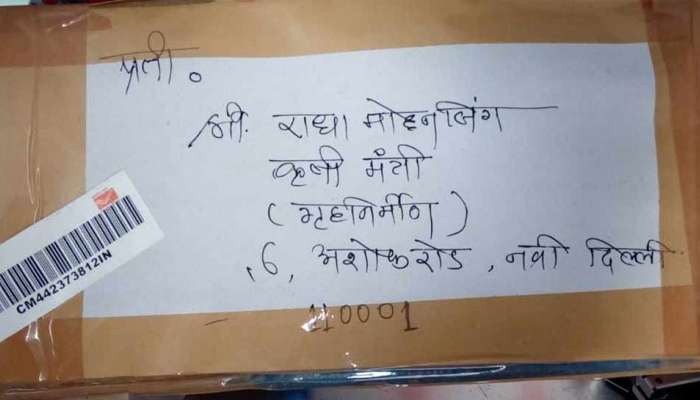 प्रती.
श्री. राधा मोहनसिंग
कृषी मंत्री
(गृहनिर्माण)
6, अशोक रोड, नवी दिल्ली
- 110001
CM442373812IN